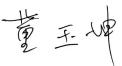 董玉坤